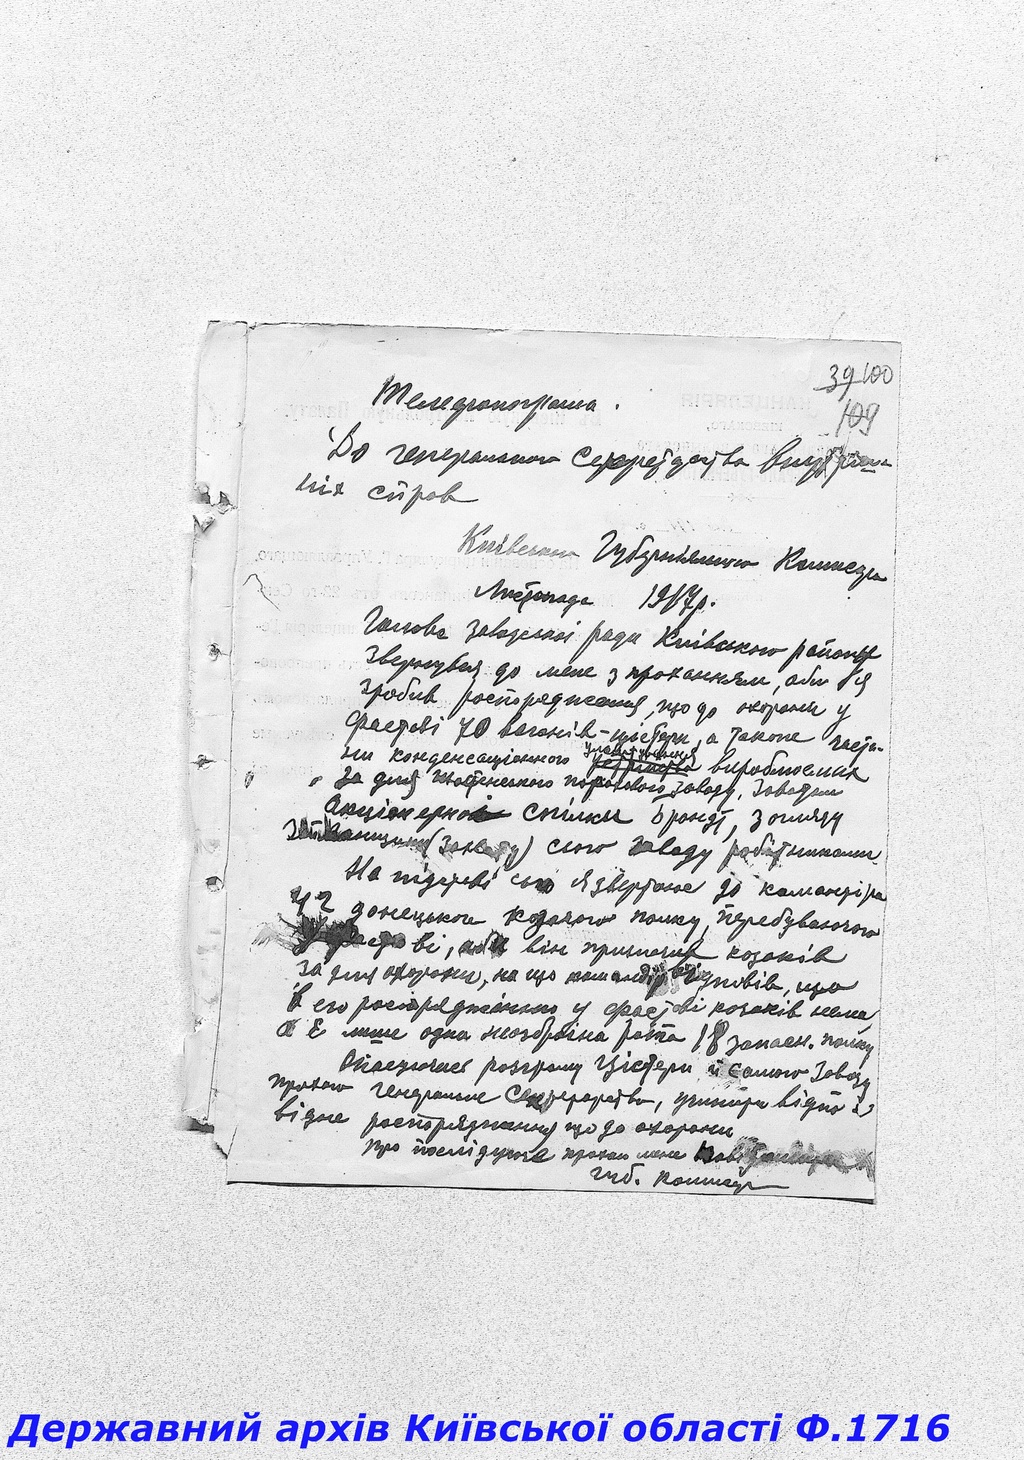 39 100
109
Телефонограма.
До генерального Секретарства внутріш-
ніх справ
Київського Губерніяльного Комисара
Листопада 1917р.
Голова Заводської ради Київського району
звернувся до мене з проханням, аби я
зробив роспорядження, що до охорони у
Фастові 70 вагонів-цістерн, а також части-
ни конденсаціонного вироблюємих
за для Шостенського порохового заводу, Заводом
Акціонерної спілки Брандт, з огляду
сього заводу робітниками.
На підставі сього я звертаюсь до командіра
донецького козачого полку, перебуваючого
у Фастові, аби він призначив козаків
за для охорони, на що командір відповів, що
в его роспорядженню у Фастові козаків нема
а є лише одна неозброєна рота 18 запасн. полку
Опасуючись розгрому Цістерн й самого Заводу
прохаю Генеральне Секретарство, учинити відпо-
відне роспорядження що до охорони
Про послідуюче прохаю мене
Губ. комисар
Державний архів Київської області Ф.1716